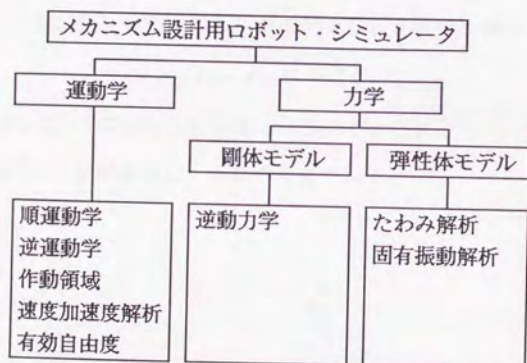 メカニズム設計用ロボット・シミュレータ
運動学
力学
剛体モデル
弾性体モデル
順運動学
逆運動学
作動領域
速度加速度解析
有効自由度
逆動力学
たわみ解析
固有振動解析